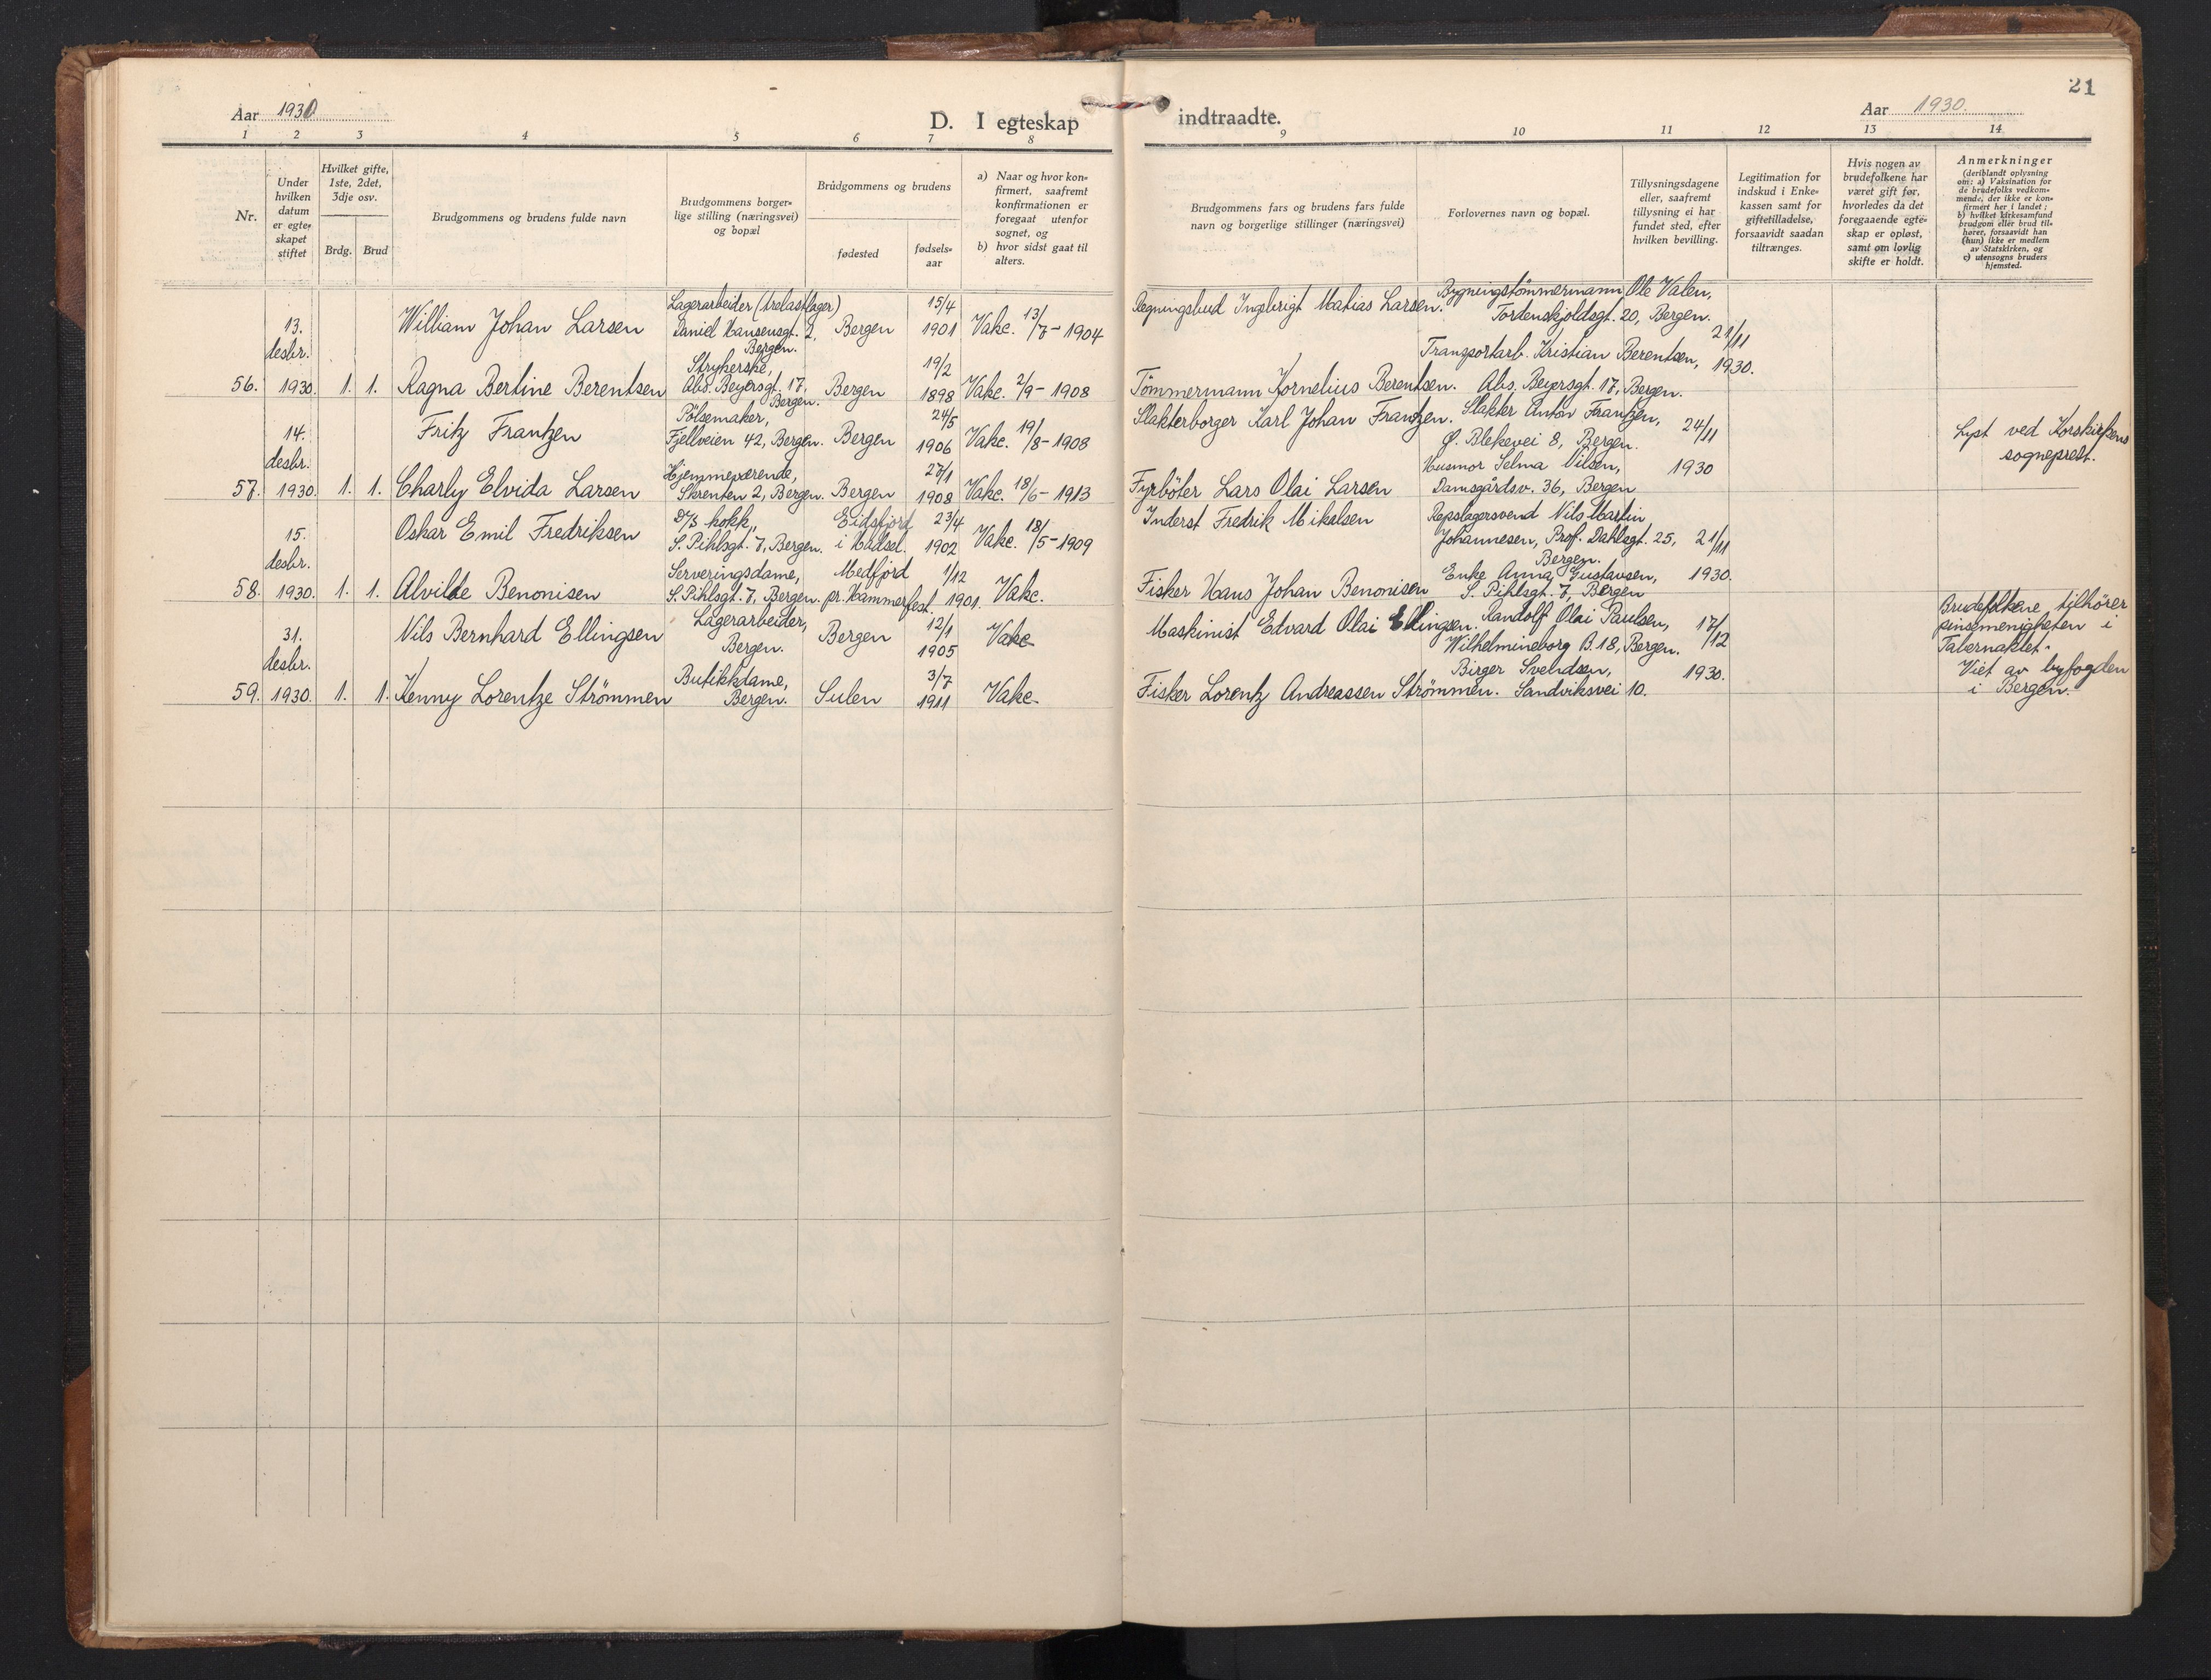 21
Aar 1930
D. I egteskap indtraadte.
Aar 1930.
1 2 3 4 5 6 7 8 9 10 11 12 13 14
Nr.
Under hvilken datum er egte-skapet stiftet
Hvilket gifte, 1ste, 2det, 3dje osv.
Brdg. Brud
Brudgommens og brudens fulde navn
Brudgommens borger-lige stilling (næringsvei) og bopæl
Brudgommens og brudens
fødested
fødsels-aar
a) Naar og hvor kon-firmert, saafremt konfirmationen er foregaat utenfor sognet, og
b) hvor sidst gaat til alters.
Brudgommens fars og brudens fars fulde navn og borgerlige stillinger (næringsvei)
Forlovernes navn og bopæl.
Tillysningsdagene eller, saafremt tillysning ei har fundet sted, efter hvilken bevilling.
Legitimation for indskud i Enke-kassen samt for giftetilladelse, forsaavidt saadan tiltrænges.
Hvis nogen av brudefolkene har været gift før, hvorledes da det foregaaende egte-skap er opløst, samt om lovlig skifte er holdt.
Anmerkninger
(deriblandt oplysning om: a) Vaksination for de brudefolks vedkom-mende, der ikke er kon-firmert her i landet; b) hvilket kirkesamfund brudgom eller brud til-hører, forsaavidt han (hun) ikke er medlem av Statskirken, og c) utensogns bruders hjemsted.
56. 13. desbr. 1930. 1. 1.
William Johan Larsen
Lagerarbeider (trelastlager)
Daniel Hansensgt. 2,
Bergen.
Bergen
15/4
1901
Vakc. 13/7 - 1904
Regningsbud Ingebrigt Matias Larsen.
Bygningstömmermann Ole Valen,
Tordenskjoldsgt. 20, Bergen.
21/11
1930.
Ragna Bertine Berentsen
Strykerske,
Abs. Beyersgt. 17,
Bergen.
Bergen
19/2
1898
Vakc. 2/9 - 1908
Tömmermann Kornelius Berentsen.
Transportarb. Kristian Berentsen,
Abs. Beyersgt. 17, Bergen.
57. 14. desbr. 1930. 1. 1.
Fritz Frantzen
Pölsemaker,
Fjellveien 42, Bergen.
Bergen
24/5
1906
Vakc. 19/8 - 1908
Slakterborger Karl Johan Frantzen.
Slakter Anton Frantzen,
Ø. Blekevei 8, Bergen.
24/11
1930
Lyst ved Korskirkens
sogneprest.
Charly Elvida Larsen
Hjemmeværende,
Skrenten 2, Bergen.
Bergen
27/1
1908
Vakc. 18/6 - 1913
Fyrböter Lars Olai Larsen
Husmor Selma Nilsen,
Damsgårdsv. 36, Bergen
58. 15. desbr. 1930. 1. 1.
Oskar Emil Fredriksen
D/S kokk,
S. Pihlsgt. 7, Bergen.
Eidsfjord
i Hadsel.
23/4
1902
Vakc. 18/5 - 1909
Inderst Fredrik Mikalsen
Repslagersvend Nils Martin
Johannesen, Prof. Dahlsgt. 25,
Bergen.
21/11
1930.
Alvilde Benonisen
Serveringsdame,
S. Pihlsgt. 7, Bergen.
Medfjord
pr. Hammerfest.
1/12
1901.
Vakc.
Fisker Hans Johan Benonisen
Enke Anna Gustavsen,
S. Pihlsgt. 7, Bergen
59. 31. desbr. 1930. 1. 1.
Nils Bernhard Ellingsen
Lagerarbeider,
Bergen.
Bergen
12/1
1905
Vakc
Maskinist Edvard Olai Ellingsen.
Randolf Olai Paulsen,
Wilhelmineborg B. 18, Bergen.
17/12
1930.
Brudefolkene tilhörer
pinsemenigheten i
Tabernaklet.
Viet av byfogden
i Bergen.
Henny Lorentze Strömmen
Butikkdame,
Bergen.
Sulen
3/7
1911
Vakc.
Fisker Lorentz Andreassen Strömmen.
Birger Svendsen,
Sandviksvei 10.